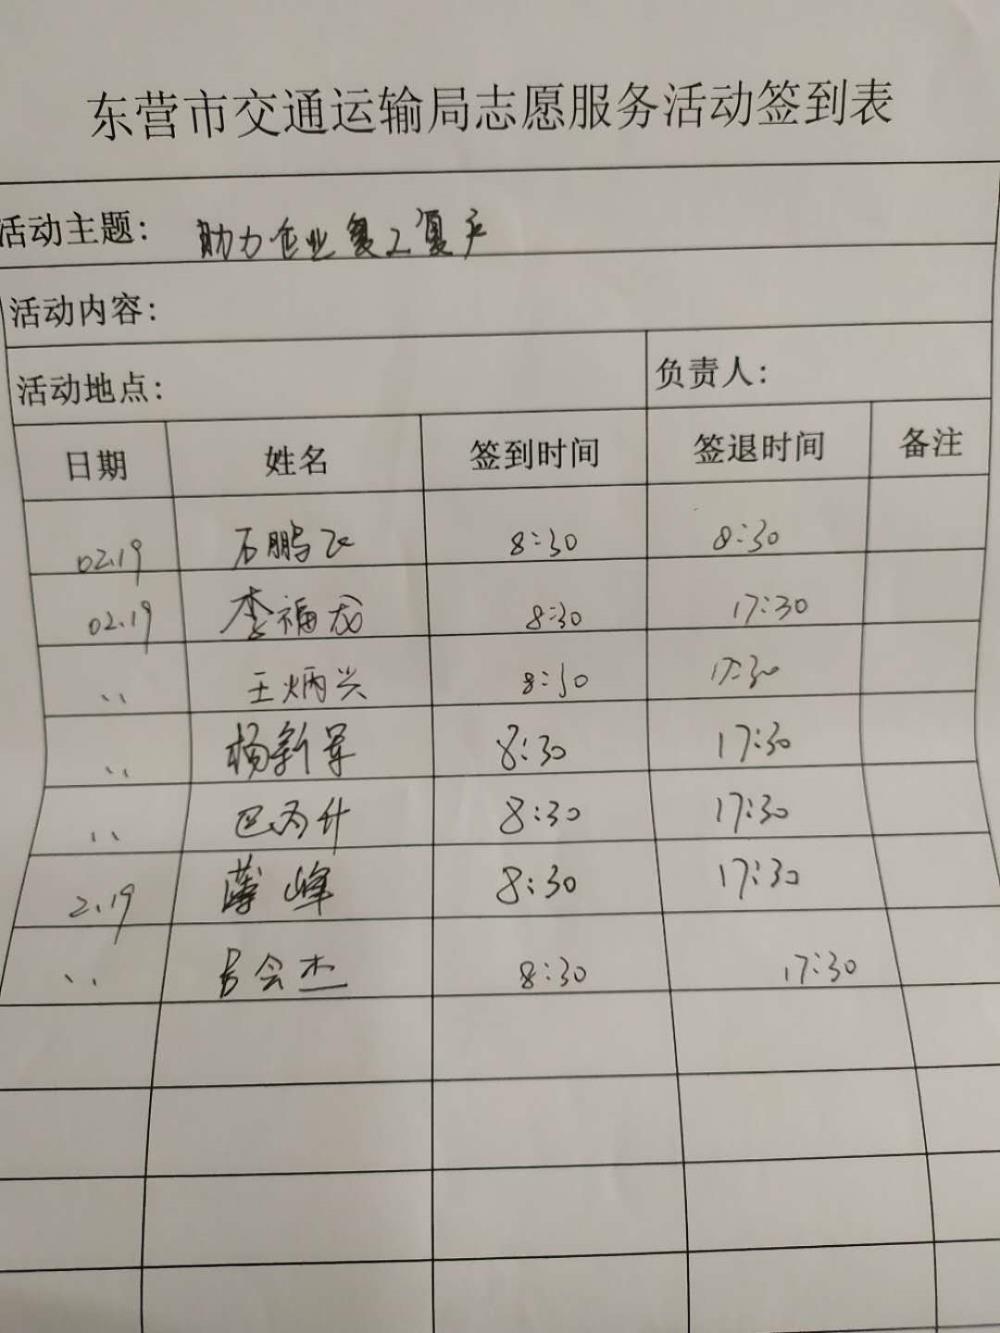 东营市交通运输局志愿服务活动签到表
活动主题: 助力企业复工复产
活动内容:
活动地点: 负责人:
日期 姓名 签到时间 签退时间 备注
02.19 石鹏飞 8:30 8:30
02.19 李福龙 8:30 17:30
、、 王炳兴 8:30 17:30
、、 杨新军 8:30 17:30
、、 巴丙升 8:30 17:30
2.19 薄峰 8:30 17:30
、、 会杰 8:30 17:30